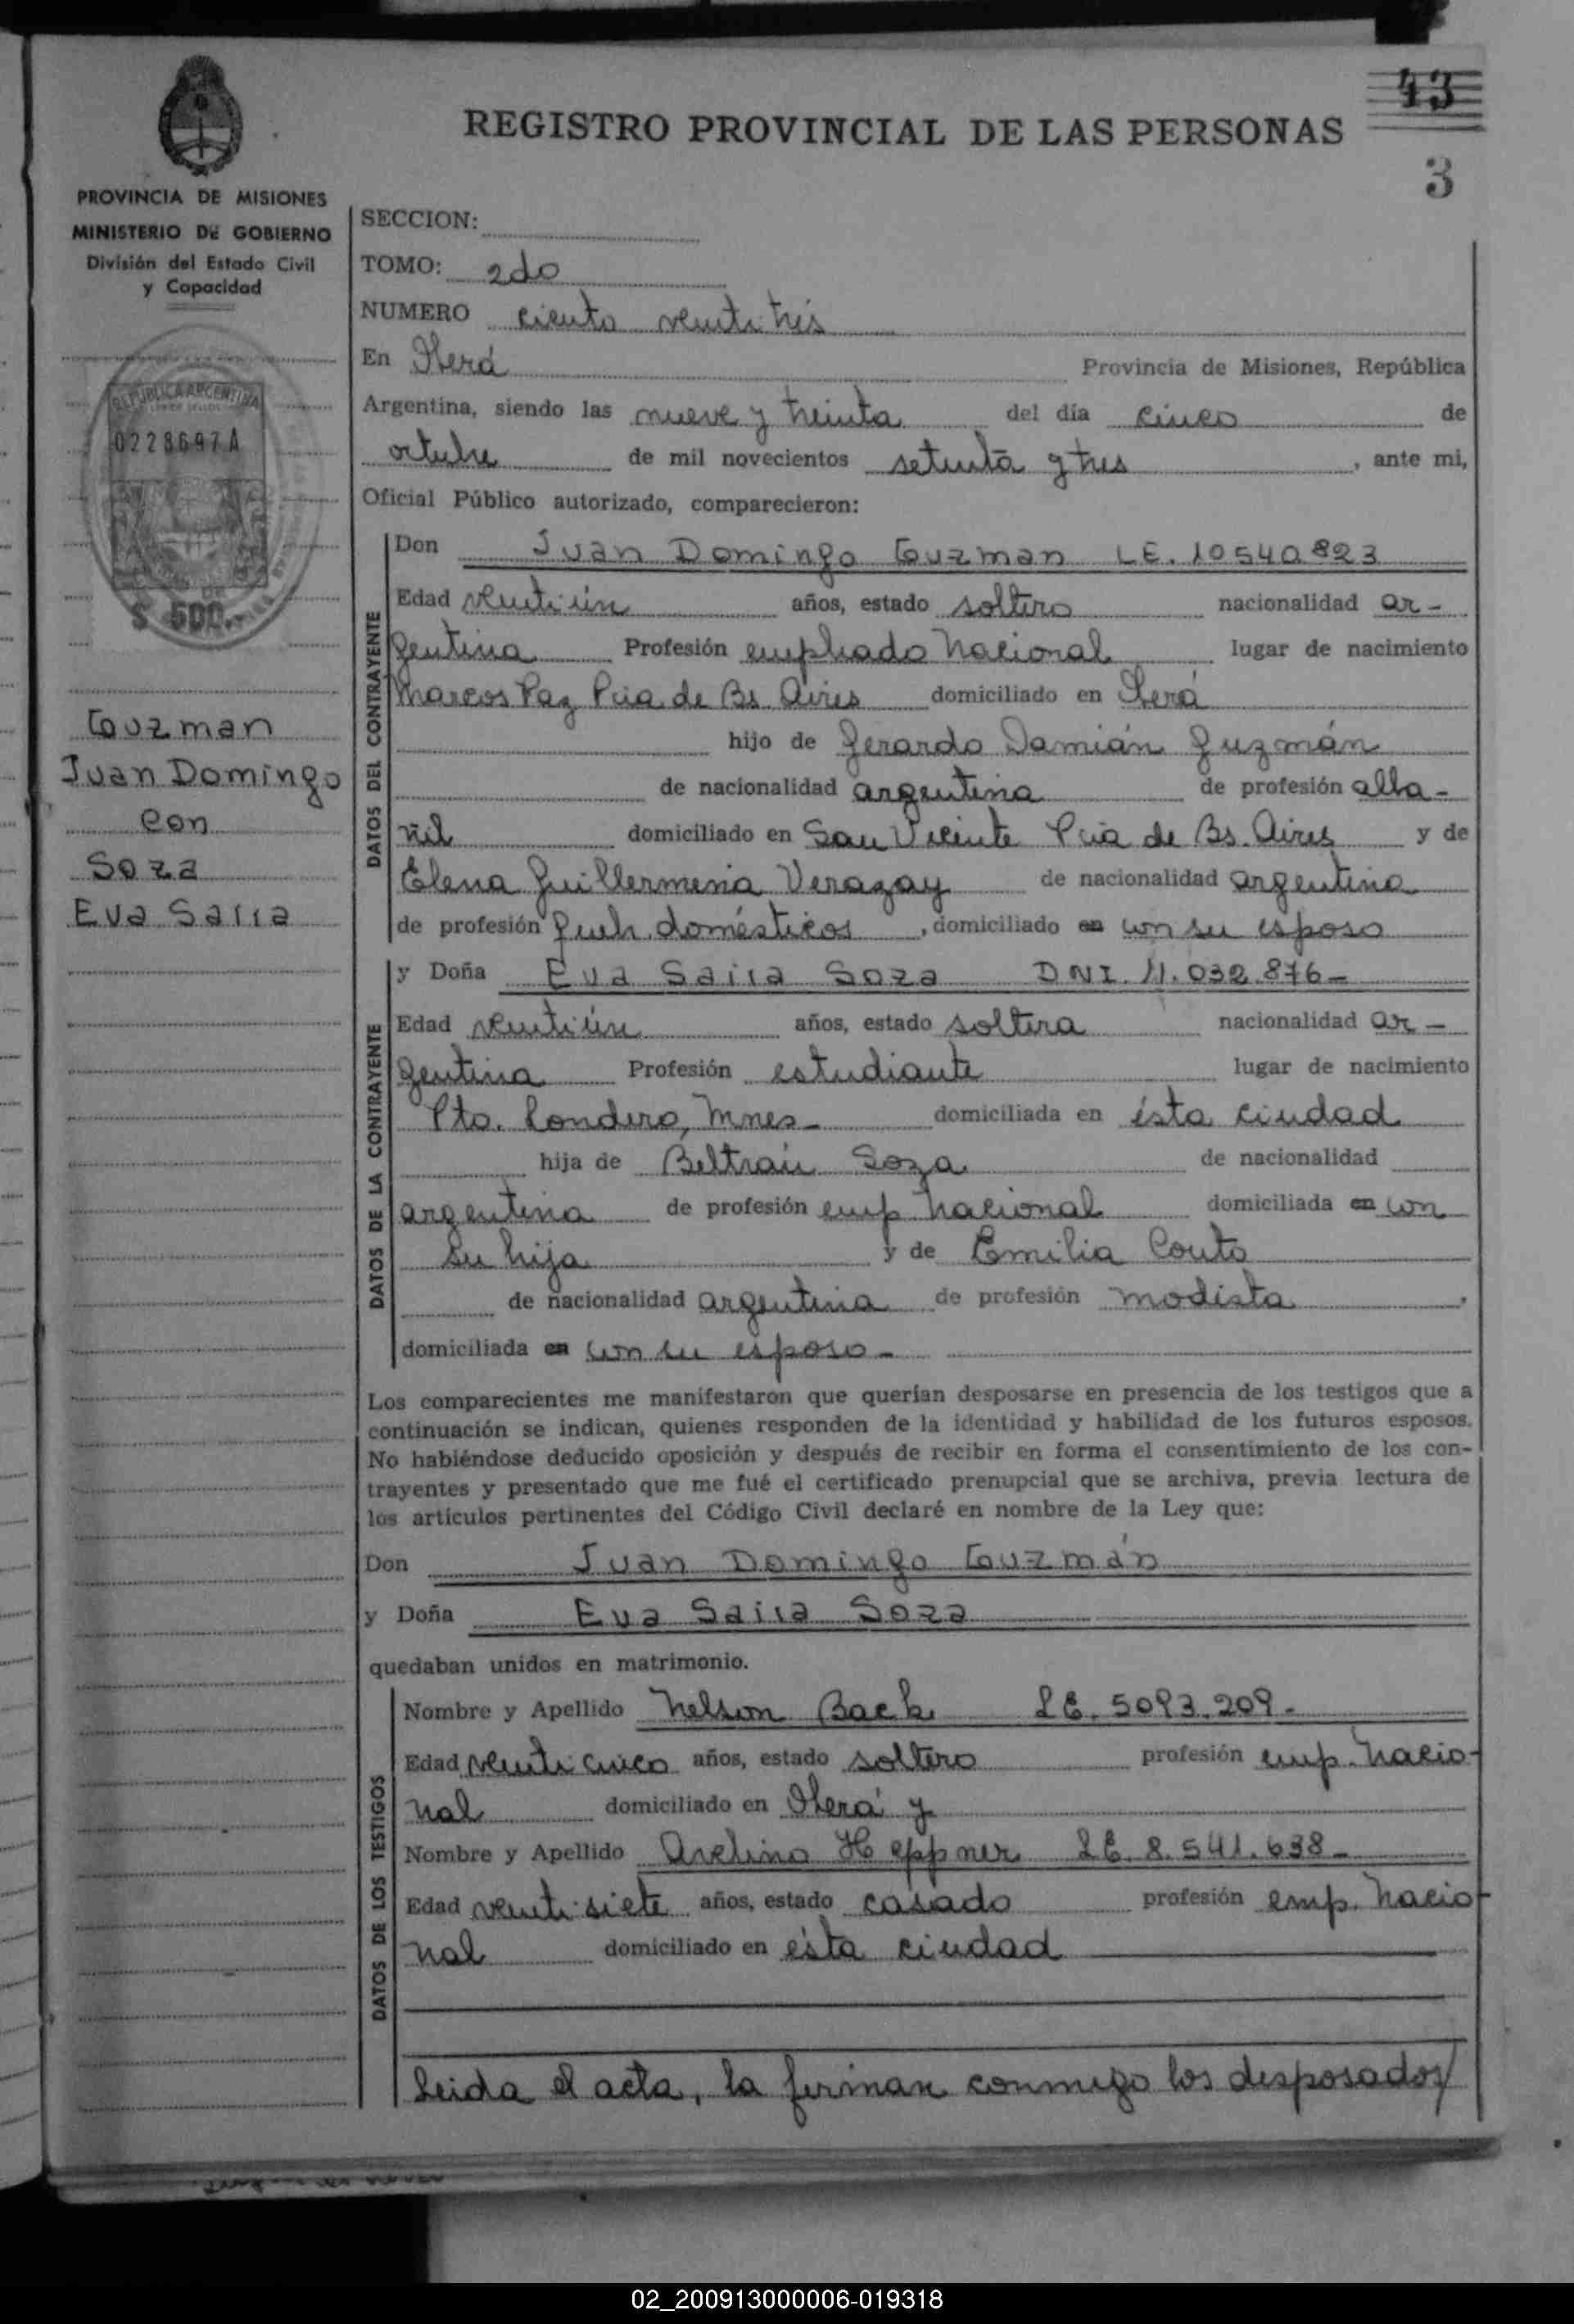 43
REGISTRO PROVINCIAL DE LAS PERSONAS
3
PROVINCIA DE MISIONES
MINISTERIO DE GOBIERNO
División del Estado Civil
y Capacidad
REPUBLICA ARGENTINA
0228697 A
$ 500.-
Guzman
Juan Domingo
con
Soza
Eva Saira
SECCION:
TOMO: 2do
NUMERO ciento veinti trés
En Oberá Provincia de Misiones, República
Argentina, siendo las nueve y treinta del día cinco de
octubre de mil novecientos setenta y tres, ante mi,
Oficial Público autorizado, comparecieron:
DATOS DEL CONTRAYENTE
Don Juan Domingo Guzman LE. 10540823
Edad veinti ún años, estado soltero nacionalidad ar-
gentina Profesión empleado Nacional lugar de nacimiento
Marcos Paz Pcia de Bs. Aires domiciliado en Oberá
hijo de Gerardo Damián Guzmán
de nacionalidad argentina de profesión alba-
ñil domiciliado en San Vicente Pcia de Bs. Aires y de
Elena Guillermina Verazay de nacionalidad argentina
de profesión Queh. domésticos, domiciliado en con su esposo
DATOS DE LA CONTRAYENTE
y Doña Eva Saira Soza DNI. 11.032.876-
Edad veinti ún años, estado soltera nacionalidad ar-
gentina Profesión estudiante lugar de nacimiento
Pto. Londero, Mnes- domiciliada en ésta ciudad
hija de Beltrán Soza de nacionalidad
argentina de profesión emp Nacional domiciliada en con
su hija y de Emilia Couto
de nacionalidad argentina de profesión modista,
domiciliada en con su esposo-
Los comparecientes me manifestaron que querían desposarse en presencia de los testigos que a
continuación se indican, quienes responden de la identidad y habilidad de los futuros esposos.
No habiéndose deducido oposición y después de recibir en forma el consentimiento de los con-
trayentes y presentado que me fué el certificado prenupcial que se archiva, previa lectura de
los artículos pertinentes del Código Civil declaré en nombre de la Ley que:
Don Juan Domingo Guzmán
y Doña Eva Saira Soza
quedaban unidos en matrimonio.
DATOS DE LOS TESTIGOS
Nombre y Apellido Nelson Back LE. 5093.209-
Edad veinti cinco años, estado soltero profesión emp. Nacio-
nal domiciliado en Oberá y
Nombre y Apellido Avelino Heppner LE. 8.541.638-
Edad veinti siete años, estado casado profesión emp. Nacio-
nal domiciliado en ésta ciudad
Leida el acta, la firman conmigo los desposados/
02_200913000006-019318